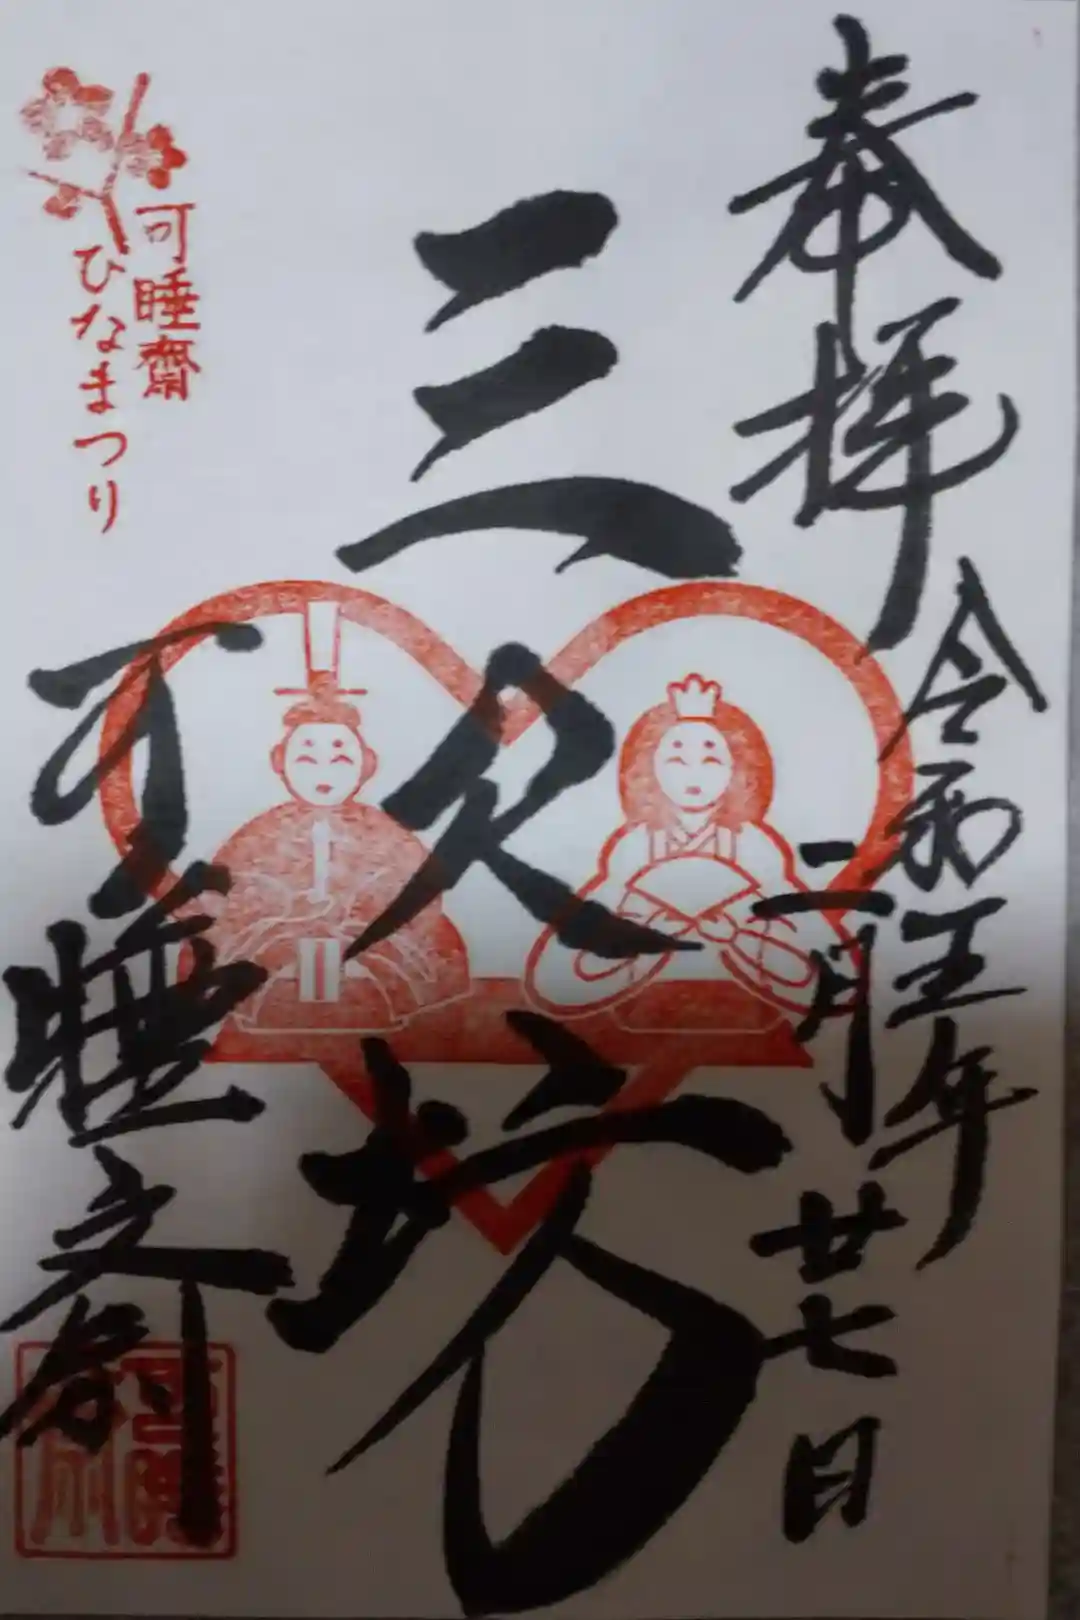 奉拝
令和五年
二月廿七日
三尺坊
可睡齋
ひなまつり
可睡齋